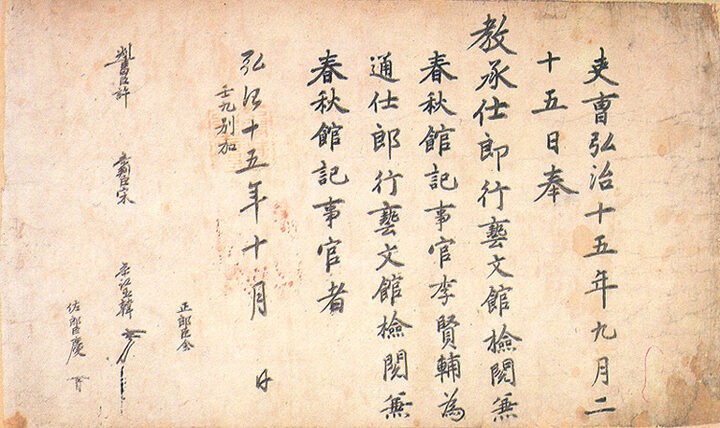 吏曹弘治十五年九月二
十五日奉
教承仕郎行藝文館檢閱兼
春秋館記事官李賢輔為
通仕郎行藝文館檢閱兼
春秋館記事官者
弘治十五年十月 日
壬九別加
判書臣許
參判臣宋
參議臣韓
正郎臣金
佐郎臣慶